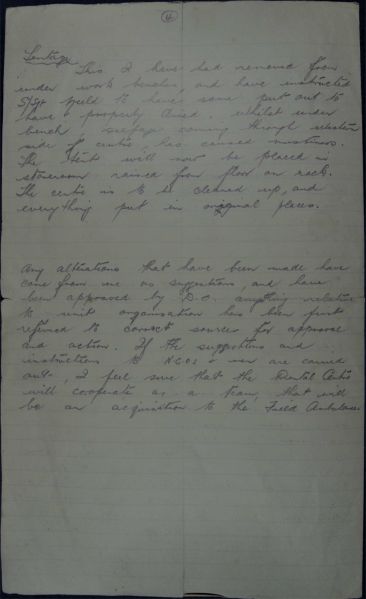 4
Tentage
This I have had removed from
under work benches, and have instructed
S/Sgt to have same put out to
have & properly dried. whilst under
bench seepage coming through western
side of centre, has caused moistness.
The tent will now be placed in
storeroom raised from floor on racks.
The centre is to be cleaned up, and
everything put in original places.
Any alterations that have been made have
come from me as suggestions, and have
been approved by D.O. anything relative
to unit organisation has been first
referred to correct sources for approval
and action. If the suggestions and
instructions to NCOs & men are carried
out, I feel sure that the Dental Centre
will cooperate as a team, that will
be an acquisition to the Field Ambulance